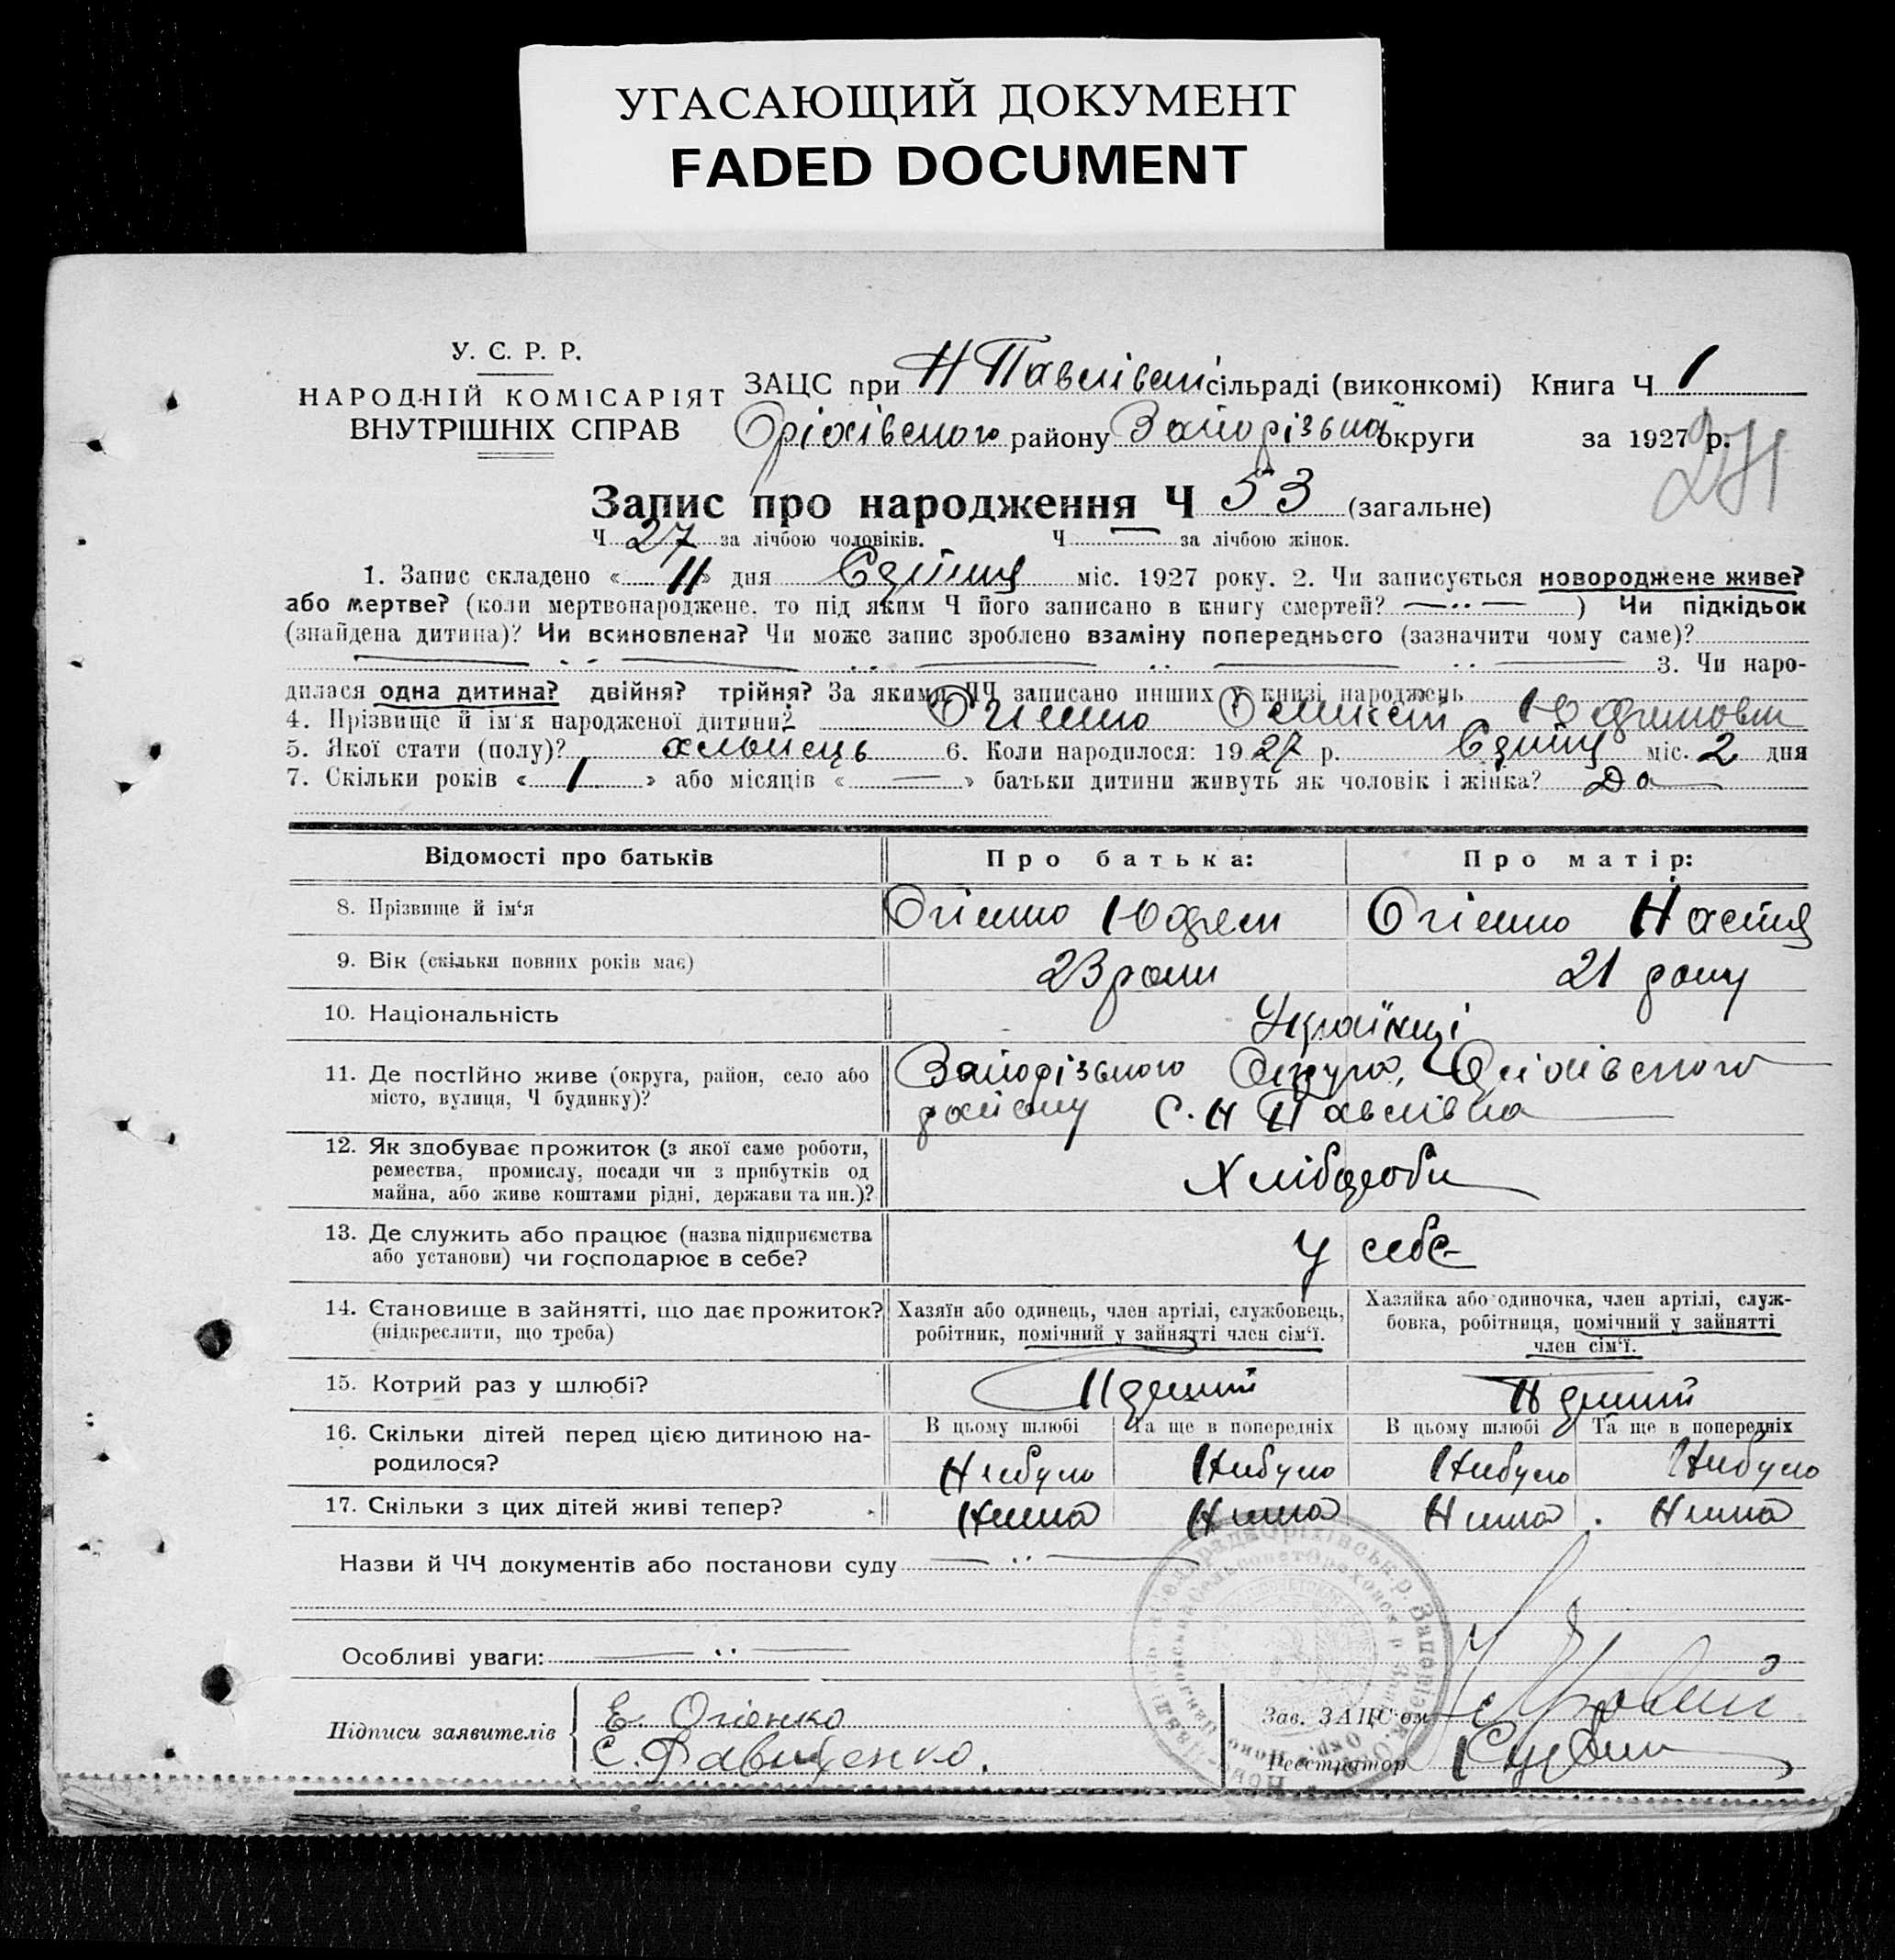 УГАСАЮЩИЙ ДОКУМЕНТ
FADED DOCUMENT
У. С. Р. Р.
НАРОДНІЙ КОМІСАРІЯТ
ВНУТРІШНІХ СПРАВ
ЗАЦС при Н Павлівські сільраді (виконкомі) Книга Ч 1
Оріхівського району Запорізької округи за 1927 р.
Запис про народження Ч 53 (загальне)
Ч 27 за лічбою чоловіків. Ч — за лічбою жінок.
1. Запис складено « 11 » дня Січня міс. 1927 року. 2. Чи записується новороджене живе?
або мертве? (коли мертвонароджене, то під яким Ч його записано в книгу смертей? —··— ) Чи підкідьок
(знайдена дитина)? Чи всиновлена? Чи може запис зроблено взаміну попереднього (зазначити чому саме)?
— ·· — ·· — ·· — ·· — 3. Чи наро-
дилася одна дитина? двійня? трійня? За якими ЧЧ записано инших у книзі народжень
4. Прізвище й ім'я народженої дитини? Огієнко
5. Якої стати (полу)? хлопець 6. Коли народилося: 1927 р. Січня міс. 2 дня
7. Скільки років « 1 » або місяців « — » батьки дитини живуть як чоловік і жінка? Да
Відомості про батьків Про батька: Про матір:
8. Прізвище й ім'я Огієнко Юхрем Огієнко Настя
9. Вік (скільки повних років має) 23 роки 21 року
10. Національність Українці
11. Де постійно живе (округа, район, село або
місто, вулиця, Ч будинку)?
Запорізького Округа, Оріхівського
району с. Н Павлівка
12. Як здобуває прожиток (з якої саме роботи,
ремества, промислу, посади чи з прибутків од
майна, або живе коштами рідні, держави та ин.)?
Хлібороби
13. Де служить або працює (назва підприємства
або установи) чи господарює в себе?
У себе
14. Становище в зайнятті, що дає прожиток?
(підкреслити, що треба)
Хазяїн або одинець, член артілі, службовець,
робітник, помічний у зайнятті член сім'ї.
Хазяйка або одиночка, член артілі, служ-
бовка, робітниця, помічний у зайнятті
член сім'ї.
15. Котрий раз у шлюбі?
16. Скільки дітей перед цією дитиною на-
родилося?
В цьому шлюбі Та ще в попередніх В цьому шлюбі Та ще в попередніх
Небуло Небуло Небуло Небуло
17. Скільки з цих дітей живі тепер? Нима Нима Нима Нима
Назви й ЧЧ документів або постанови суду — ·· —
Особливі уваги: — ·· —
Підписи заявителів
Е. Огіенко
С.
Зав. ЗАЦС'ом
Реєстратор